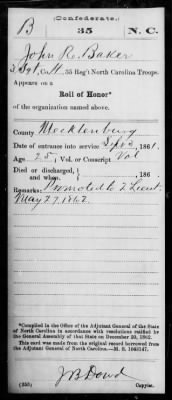 (Confederate.)
B 35 N.C.
John R. Baker
3 Sgt, Co. H., 35 Reg't North Carolina Troops.
Appears on a
Roll of Honor*
of the organization named above.
County Mecklenburg
Date of entrance into service Sept 3, 1861.
Age 25, Vol. or Conscript Vol
Died or discharged, and when. , 186 .
Remarks: Promoted to 2 Lieut.
May 27. 1862.
*Compiled in the Office of the Adjutant General of the State
of North Carolina in accordance with resolutions ratified by
the General Assembly of that State on December 20, 1862.
This card was made from the original record borrowed from
the Adjutant General of North Carolina.—M. S.
(353) J B Dowd
Copyist.